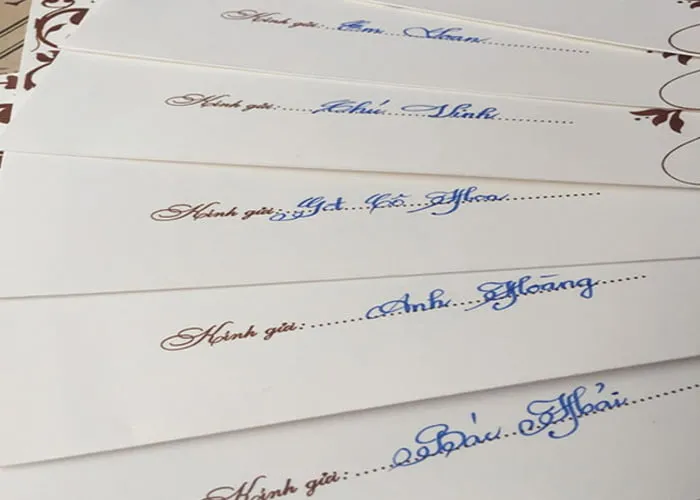 Kính gửi:.....Em Loan..........
Kính gửi:.....Chú Vinh..........
Kính gửi:..Gđ Cô Hoa..........
Kính gửi:.......Anh Hoàng.......
Kính gửi:.....Bác Hải..........